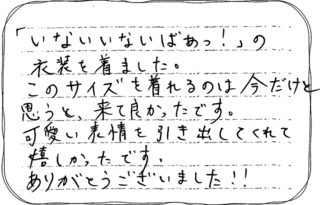 「いないいないばあっ！」の
衣装を着ました。
このサイズを着れるのは今だけと
思うと、来て良かったです。
可愛い表情を引き出してくれて
嬉しかったです。
ありがとうございました！！